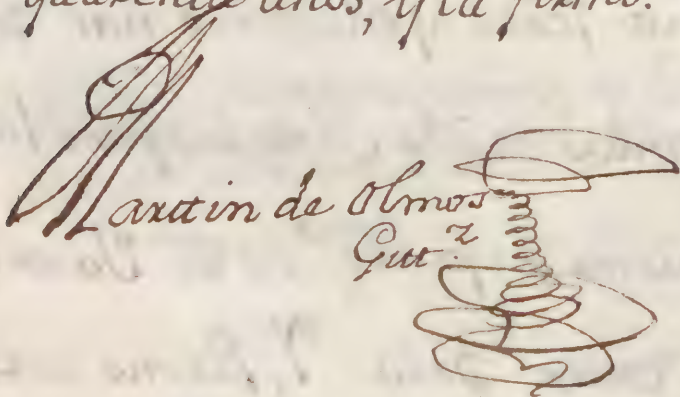 quarenta años, y la firmo.
Marttin de Olmos
Gutt.z